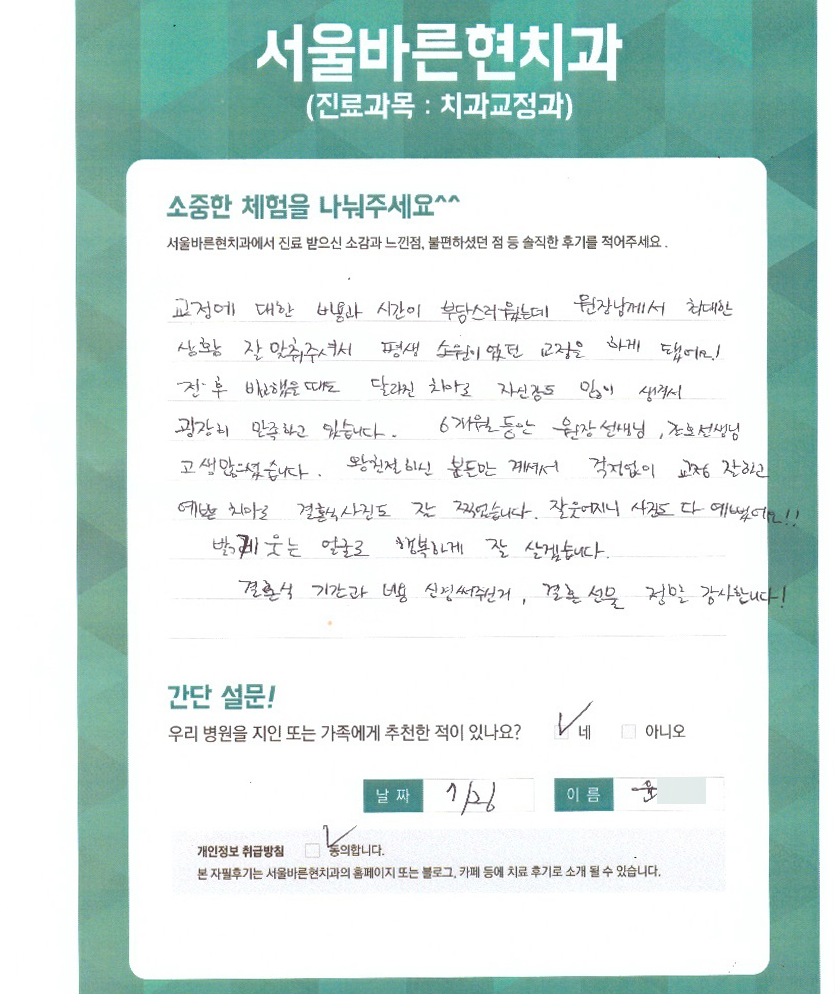 서울바른현치과
(진료과목 : 치과교정과)
소중한 체험을 나눠주세요^^
서울바른현치과에서 진료 받으신 소감과 느낀점, 불편하셨던 점 등 솔직한 후기를 적어주세요.
교정에 대한 비용과 시간이 부담스러웠는데 원장님께서 최대한
상황 잘 맞춰주셔서 평생 소원이었던 교정을 하게 됐어요!
전·후 비교했을때도 달라진 치아로 자신감도 많이 생겨서
굉장히 만족하고 있습니다. 6개월동안 원장선생님, 간호선생님
고생많으셨습니다. 왕친절하신 분들만 계셔서 걱정없이 교정 잘하고
예쁜 치아로 결혼식사진도 잘 찍었습니다. 잘웃어지니 사진도 다 예뻤어요!!
밝게 웃는 얼굴로 행복하게 잘 살겠습니다.
결혼식 기간과 비용 신경써주신거, 결혼 선물 정말 감사합니다!
간단 설문!
우리 병원을 지인 또는 가족에게 추천한 적이 있나요? 네 아니오
날 짜 이 름 윤
개인정보 취급방침 동의합니다.
본 자필후기는 서울바른현치과의 홈페이지 또는 블로그, 카페 등에 치료 후기로 소개 될 수 있습니다.